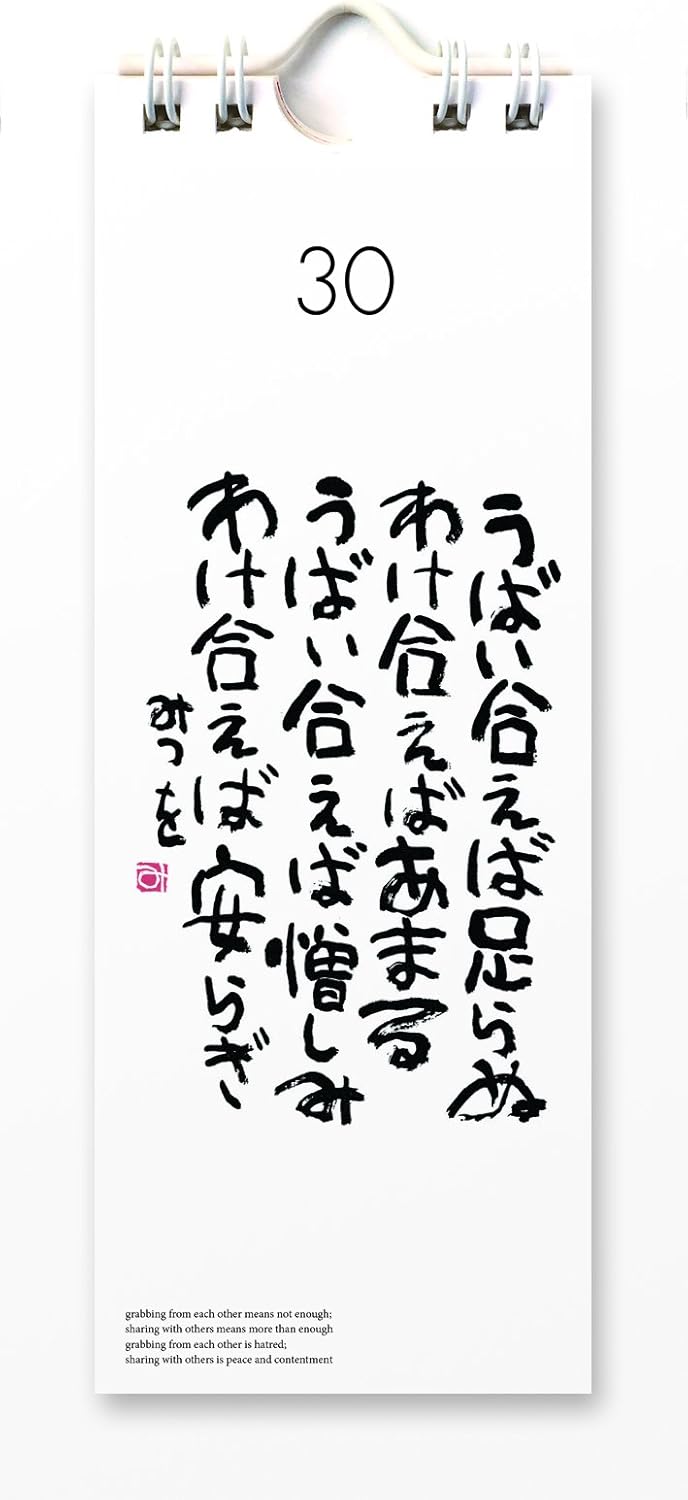 30
うばい合えば足らぬ
わけ合えばあまる
うばい合えば憎しみ
わけ合えば安らぎ
みつを
grabbing from each other means not enough;
sharing with others means more than enough
grabbing from each other is hatred;
sharing with others is peace and contentment